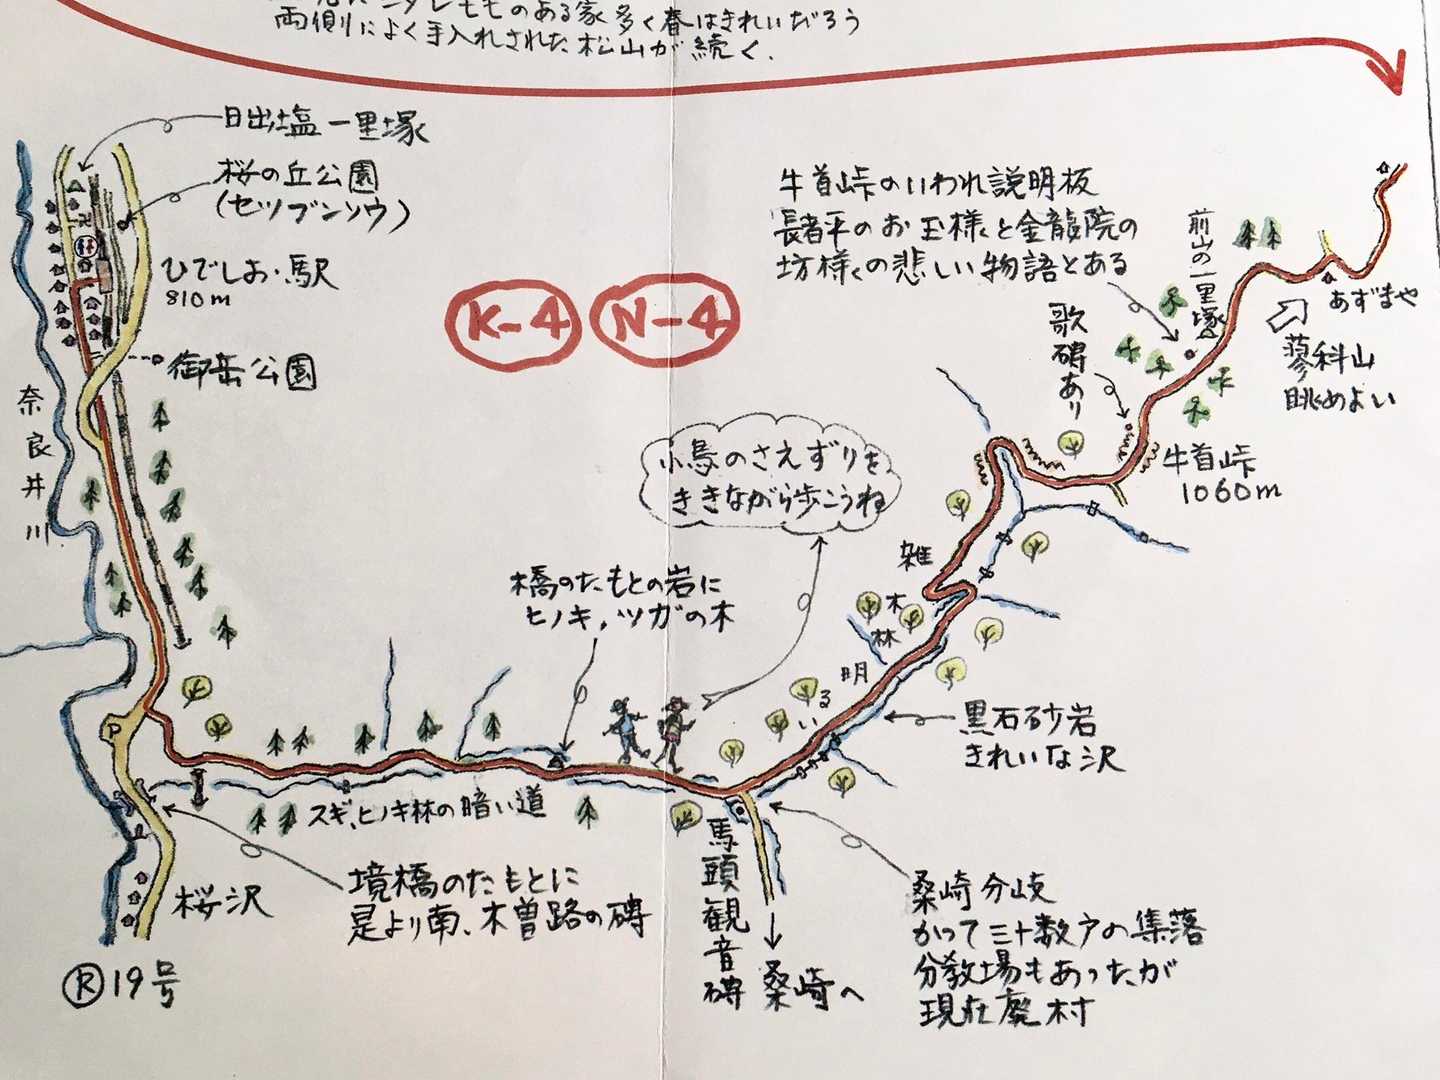 シダレモモのある家多く春はきれいだろう
両側によく手入れされた松山が続く.
日出塩一里塚
桜の丘公園
(セツブンソウ)
ひでしお・駅
810m
御岳公園
奈良井川
K-4
N-4
牛首峠のいわれ説明板
長者平のお玉様と金龍院の
坊様の悲しい物語とある
前山の一里塚
歌碑あり
あずまや
蓼科山
眺めよい
牛首峠
1060m
小鳥のさえずりを
ききながら歩こうね
橋のたもとの岩に
ヒノキ,ツガの木
雑木林
明るい
黒石砂岩
きれいな沢
P
スギ、ヒノキ林の暗い道
境橋のたもとに
是より南、木曽路の碑
桜沢
R 19号
馬頭観音碑
桑崎へ
桑崎分岐
かつて三十数戸の集落
分教場もあったが
現在廃村